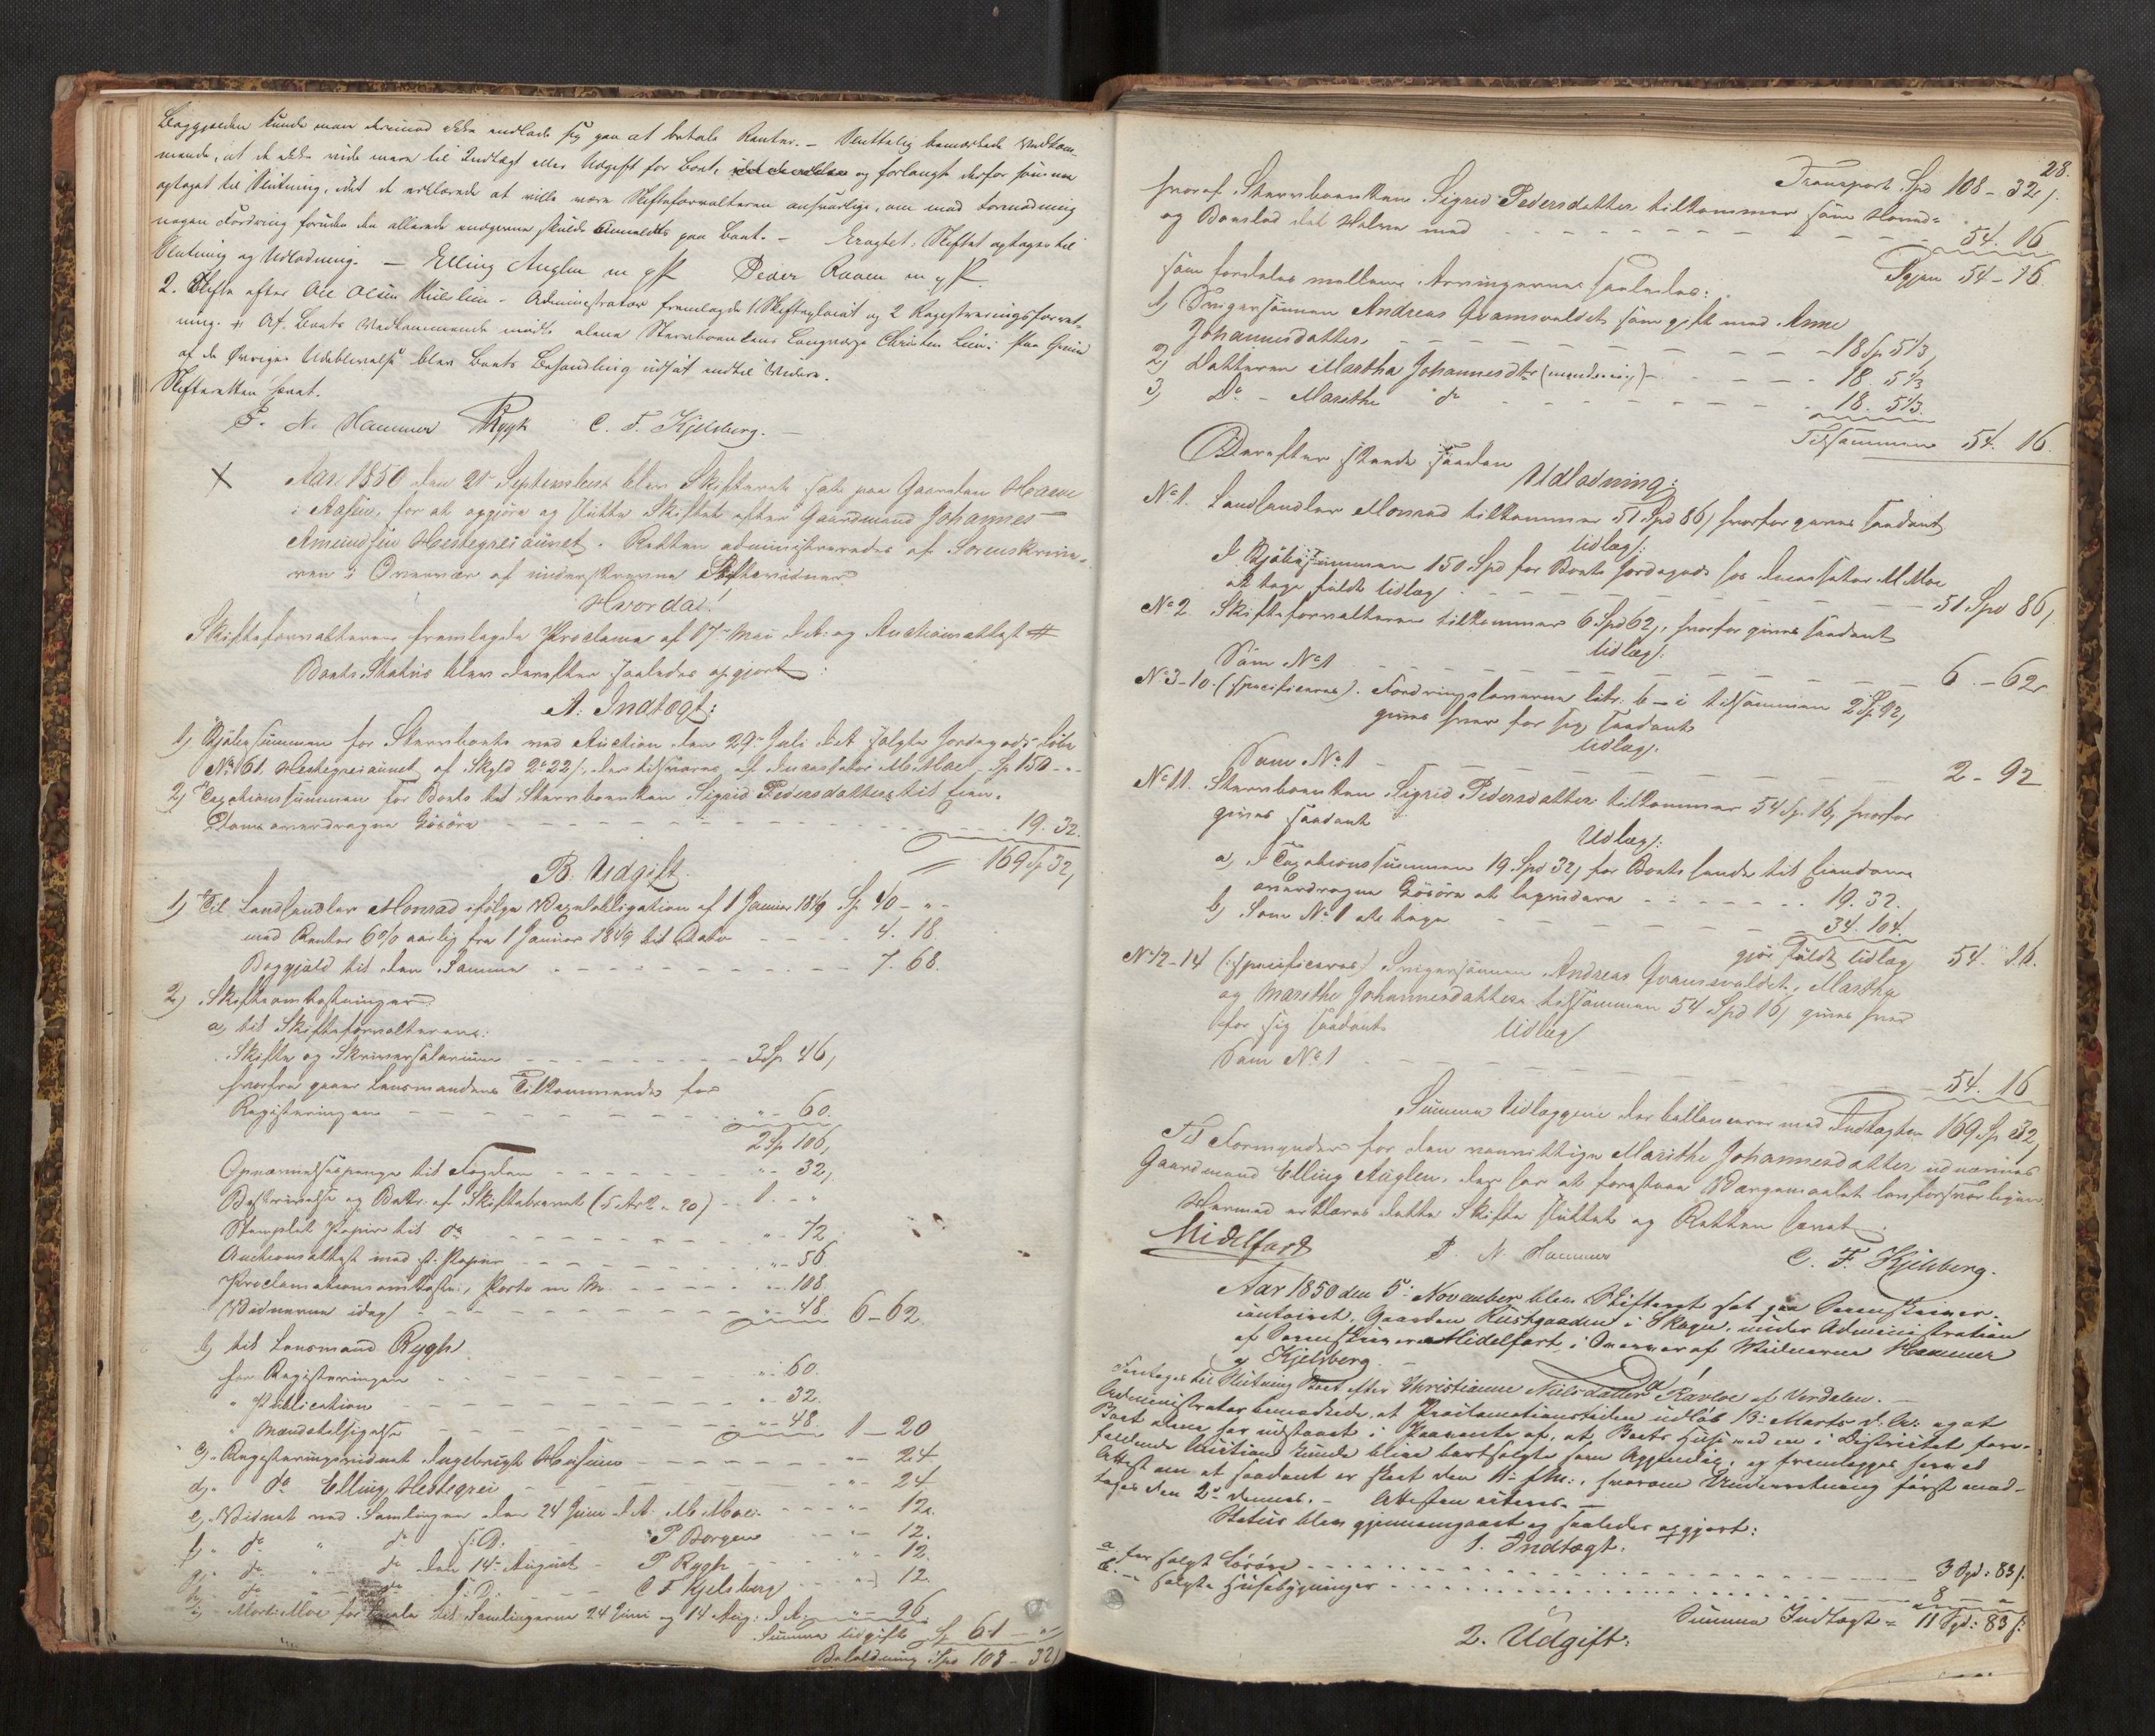 Baggjælden kunde man derimod ikke indlade sig paa at betale Renter. – Sluttelig bemærkede Vedkom-
mende, at de ikke vide mere til Indtægt eller Udgift for Boet, og forlangte derfor samme
optaget til Slutning, idet de erklærede at ville være Skifteforvalteren ansvarlige, om mod Formodning
nogen Fordring foruden de allerede angivne skulde anmeldes paa Boet. – Eragtet: Skiftet optages til
Slutning og Udlodning. – Elling Auglen m p P Peder Raaen m p P
2. Skifte efter Ole Olsen – Administrator fremlagde 1 Skifteplacat og 2 Registreringsforret-
ning. Af Boets Vedkommende mødte alene Stervboenkens Laugværge Christen
af de Øvriges Udeblivelse blev Boets Behandling udsat indtil Videre.
Skifteretten hævet.
P. N. Hammer Rygh C. F. Kjelsberg. –
Aar 1850 den 21 September blev Skifteret sat paa Gaarden Hammer
i Aasen, for at opgjøre og slutte Skiftet efter Gaardmand Johannes
Amundsen Hestegreiaunet. Retten administreredes af Sorenskrive-
ren i Overvær af underskrevne Skiftevidner
Hvorda!
Skifteforvalteren fremlagde Proclama af 17de Mai d. A. og Auctionsattest #
Boets Status blev derefter saaledes opgjort:
A. Indtægt:
1) Kjøbesummen for Stervboets ved Auction den 29de Juli d. A. solgte Jordegods Løbe
No 161. Hestegreiaunet af Skyld 2 22 /, der tilhører af M. Moe Sp 150 - "
2) Taxationssummen for Boets til Stervboenken Sigrid Pedersdatter til Eien-
dom overdragne Løsøre - - - 19. 32.
169 Sp 32,
B. Udgift.
1) Til Landhandler Monrad ifølge Vexelobligation af 1 Januar 1849 Sp 40 - " -
med Renter 6% aarlig fra 1 Januar 1849 til Dato - - - 4. 18.
Baggjæld til den Samme - - - 7. 68.
2) Skifteomkostninger
a, til Skifteforvalteren:
Skifte og Skriversalarium - - - 3 Sp 46,
hvorfra gaaer Lensmandens Tilkommende for
Registeringen - - - " - 60.
2 Sp 106,
Opnævnelsespenge til Fogden - - - " - 32,
Beskrivelse og Bekr. af Skiftebrevet (5 Ark a 20) - - 1. - "
Stemplet Papir til do - - - " - 72
Auctionsattest med st. Papir - - - " - 56
Proclamationsomkostn., Porto m. M. - - - " - 108.
Vidnerne idag - - - " - 48. 6 – 62.
b) til Lensmand Rygh
for Registeringen - - - " - 60.
" Publication - - - " 32.
" Mændstilsigelse - - - " - 48. 1 – 20
c) " Registeringsvidnet Ingebrigt Husum - - - " - 24
d) " do Elling Hestegrei - - - " - 24
e) " Vidnet ved Samlingen den 24 Juni d. A. M. Moe - - - " - 12.
f) " do " do s. D. P Borgen - - - 12.
g) do " do den 14de August - P Rygh - - - " - 12.
h) do do s. D. - - C F Kjelsberg - - - " - 12.
i) - Morti Moe for til Samlingerne 24 Juni og 14 Aug: d. A. - " - 96
Summa Udgift Sp 61 - "
Beholdning Spd 108 – 32/
28.
Transport Spd 108 – 32/.
hvoraf Stervboenken Sigrid Pedersdatter tilkommer som Hoved-
og Boeslod det Halve med - - - 54. 16.
Igjen 54 – 16.
som fordeles mellem Arvingerne saaledes:
1) Svigersønnen Andreas Qvamsvaldet som gift med Anne
Johannesdatter. - - - 18 Sp 5 1/3,
2) Datteren Martha Johannesdtr (myndig) - - - 18. 5 1/3
3) Do - Marithe do - - - 18. 5 1/3.
Tilsammen 54. 16.
Derefter skeede saadan
Udlodning:
No 1. Landhandler Monrad tilkommer 51 Spd 86/ hvorfor gives saadant
Udlæg:
I Kjøbesummen 150 Spd for Boets Jordegods hos M Moe
at tage fuldt Udlæg - - - 51 Spd 86/
No 2 Skifteforvalteren tilkommer 6 Spd 62/, hvorfor gives saadant
Udlæg:
Som No 1 - - - 6 - 62.
No 3–10. (specificeres). Fordringshaverne litr. b – i tilsammen 2 Sp 92,
gives hver for sig saadant
Udlæg:
Som No 1 - - - 2 – 92
No 11. Stervboenken Sigrid Pedersdatter tilkommer 54 Sp. 16, hvorfor
gives saadant
Udlæg:
a) I Taxationssummen 19 Spd 32, for Boets hende til Eiendom
overdragne Løsøre at liqvidere - - - 19. 32.
b) Som No 1 at tage - - - 34. 104.
gjør fuldt Udlæg 54. 16.
No 12–14 (specificeres) Svigersønnen Andreas Qvamsvaldet, Martha
og Marithe Johannesdatter tilsammen 54 Spd 16/ gives hver
for sig saadant
Udlæg
Som No 1 - - - 54. 16
Summa Udlæggene der ballancerer med Indtægten 169 Sp 32,
Til Formynder for den vanvittige Marithe Johannesdatter udnævnes
Gaardmand Elling Auglen, der har at forestaae Værgemaalet lovforsvarligen.
Hermed erklæres dette Skifte sluttet og Retten hævet.
Midelfart P. N. Hammer C. F. Kjelsberg.
Aar 1850 den 5te November blev Skifteret sat paa Sorenskriver-
contoiret, Gaarden Rustgaarden i Skogn, under Administration
af Sorenskriver Midelfart, i Overvær af Vidnerne Hammer
og Kjelsberg. –
Da!
Foretoges til Slutning Boet efter Christianne Nielsdatter Ravloe af Verdalen. –
Administrator bemærkede, at Proclamationstiden udløb 13: Marts d: A: og at
Boet alene har udstaaet i Paavente af, at Boets Huse med en i Districtet fore-
faldende Auction kunde blive bortsolgte som Appendix, og fremlægges herved
Attest om at saadant er skeet den 11te f: M:, hvorom Underretning først mod-
toges den 2den dennes. – Attesten . –
Status blev gjennemgaaet og saaledes opgjort:
1. Indtægt.
a. for solgt Løsøre - - - 3 Spd: 83 /.
b. — solgte Huusebygninger - - - 8 — "
Summa Indtægt = 11 Spd: 83 /:
2. Udgift: